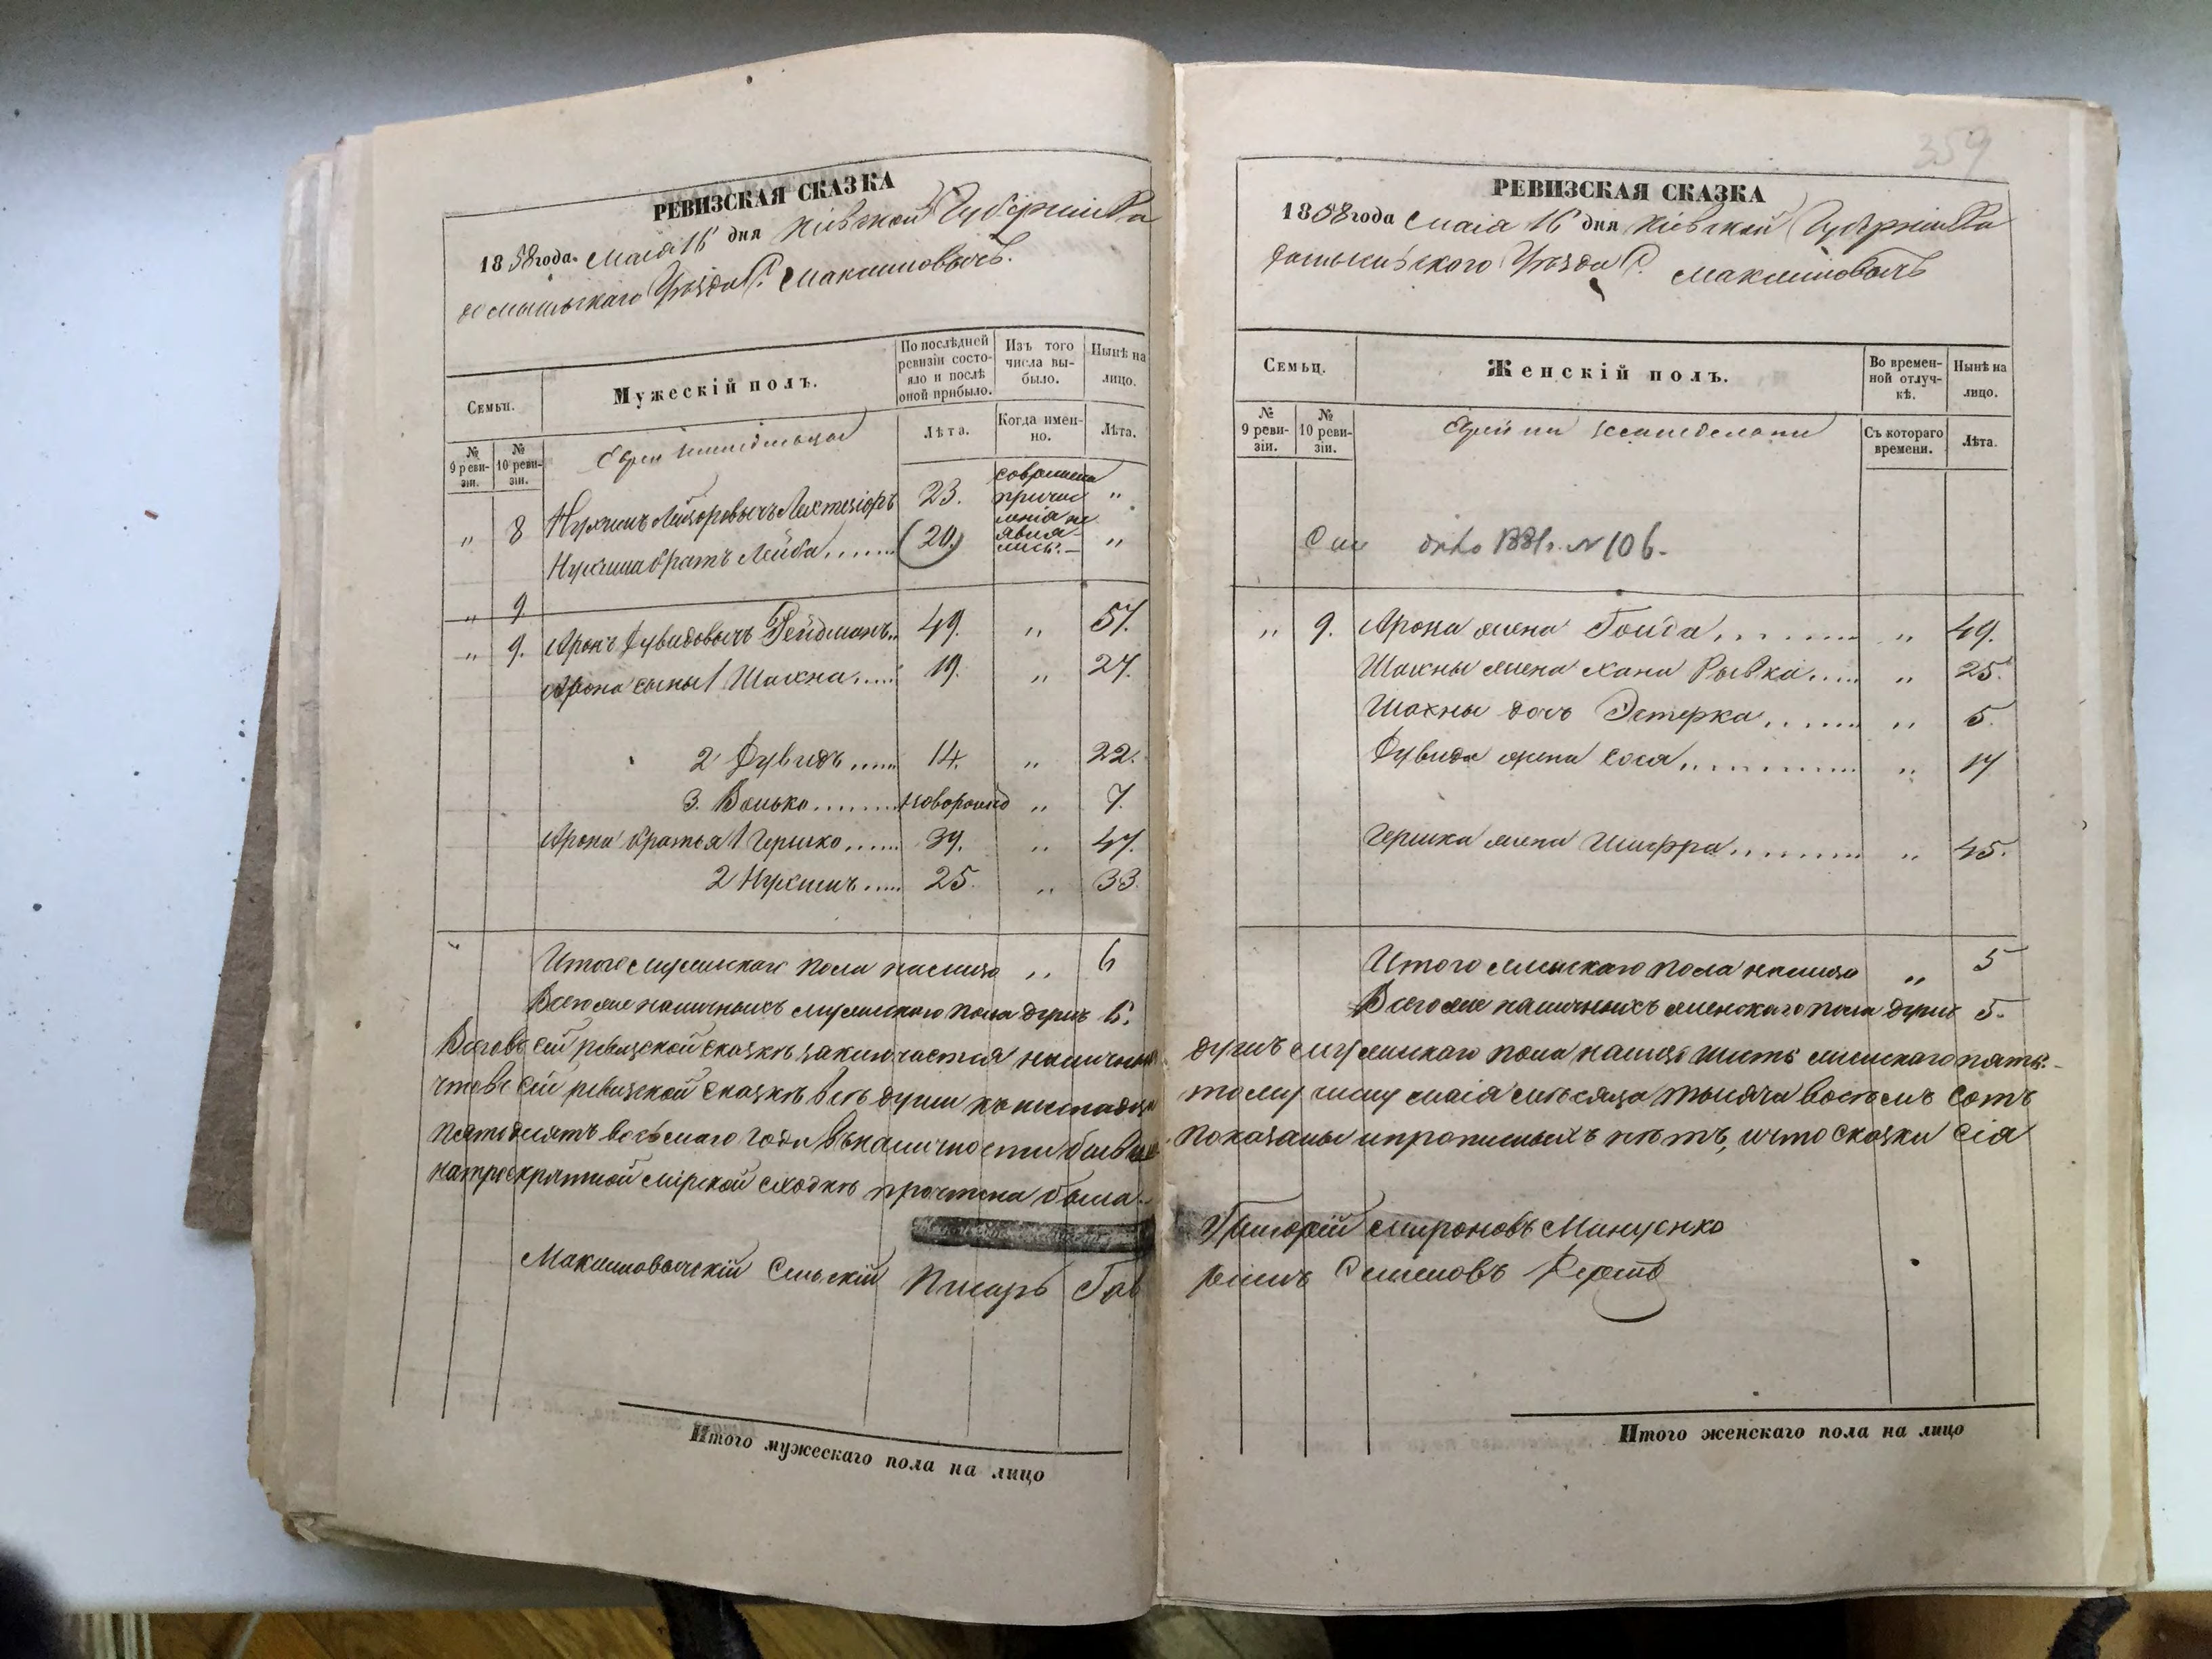 РЕВИЗСКАЯ СКАЗКА
1858 года Маія 16 дня Кіевской Губерніи Ра
домысльскаго Уѣзда С. Максимовичъ.
Семьи.
Мужескій полъ.
По послѣдней ревизіи состояло и послѣ оной прибыло.
Изъ того числа выбыло.
Нынѣ на лицо.
№ 9 ревизіи.
№ 10 ревизіи.
Евреи
Лѣта.
Когда именно.
Лѣта.
" 8 Нухимъ Лейзоровичъ 23. "
Нухима братъ Лейба....... (20.) "
со времени
причис
ленія не
яви
лись.
" 9
" 9. Аронъ Дувидовичъ Фейдманъ.. 49. " 57.
Арона сыны 1 Шахна..... 19. " 27.
2 Дувидъ..... 14. " 22.
3. Волько........ новорожд " 7.
Арона братья 1 Гершко...... 39. " 47.
2 Нухимъ..... 25. " 33.
Итого мужескаго пола налицо " 6
Всего же наличныхъ мужескаго пола душъ 6.
Всего въ сей ревизской сказкѣ заключается наличныхъ
что въ сей ревизской сказкѣ всѣ души къ шестнадца
пятьдесятъ восьмаго года въ наличности бывшіе
на троекратной мірской сходкѣ прочтена была.
Максимовичскій Сельскій Писарь Гав
Итого мужескаго пола на лицо
359
РЕВИЗСКАЯ СКАЗКА
1858 года Маія 16 дня Кіевской Губерніи Ра
домысльского Уѣзда С. Максимовичъ
Семьи.
Женскій полъ.
Во временной отлучкѣ.
Нынѣ на лицо.
№ 9 ревизіи.
№ 10 ревизіи.
Еврейки
Съ котораго времени.
Лѣта.
1881 г. № 106.
" 9. Арона жена Гольда......... " 49.
Шахны жена Хана Рывка..... " 25.
Шахны дочь Эстерка....... " 5.
Дувида жена Сося............. " 17
Гершка жена Шифра......... " 45.
Итого женскаго пола налицо " 5
Всего же наличныхъ женскаго пола душъ 5.
душъ мужескаго пола налицо шесть женскаго пять.
тому числу маія мѣсяца тысяча восемь сотъ
показаны и прописныхъ нѣтъ, и что сказка сія
Григорій Мироновъ Манценко
ріилъ Семеновъ
Итого женскаго пола на лицо